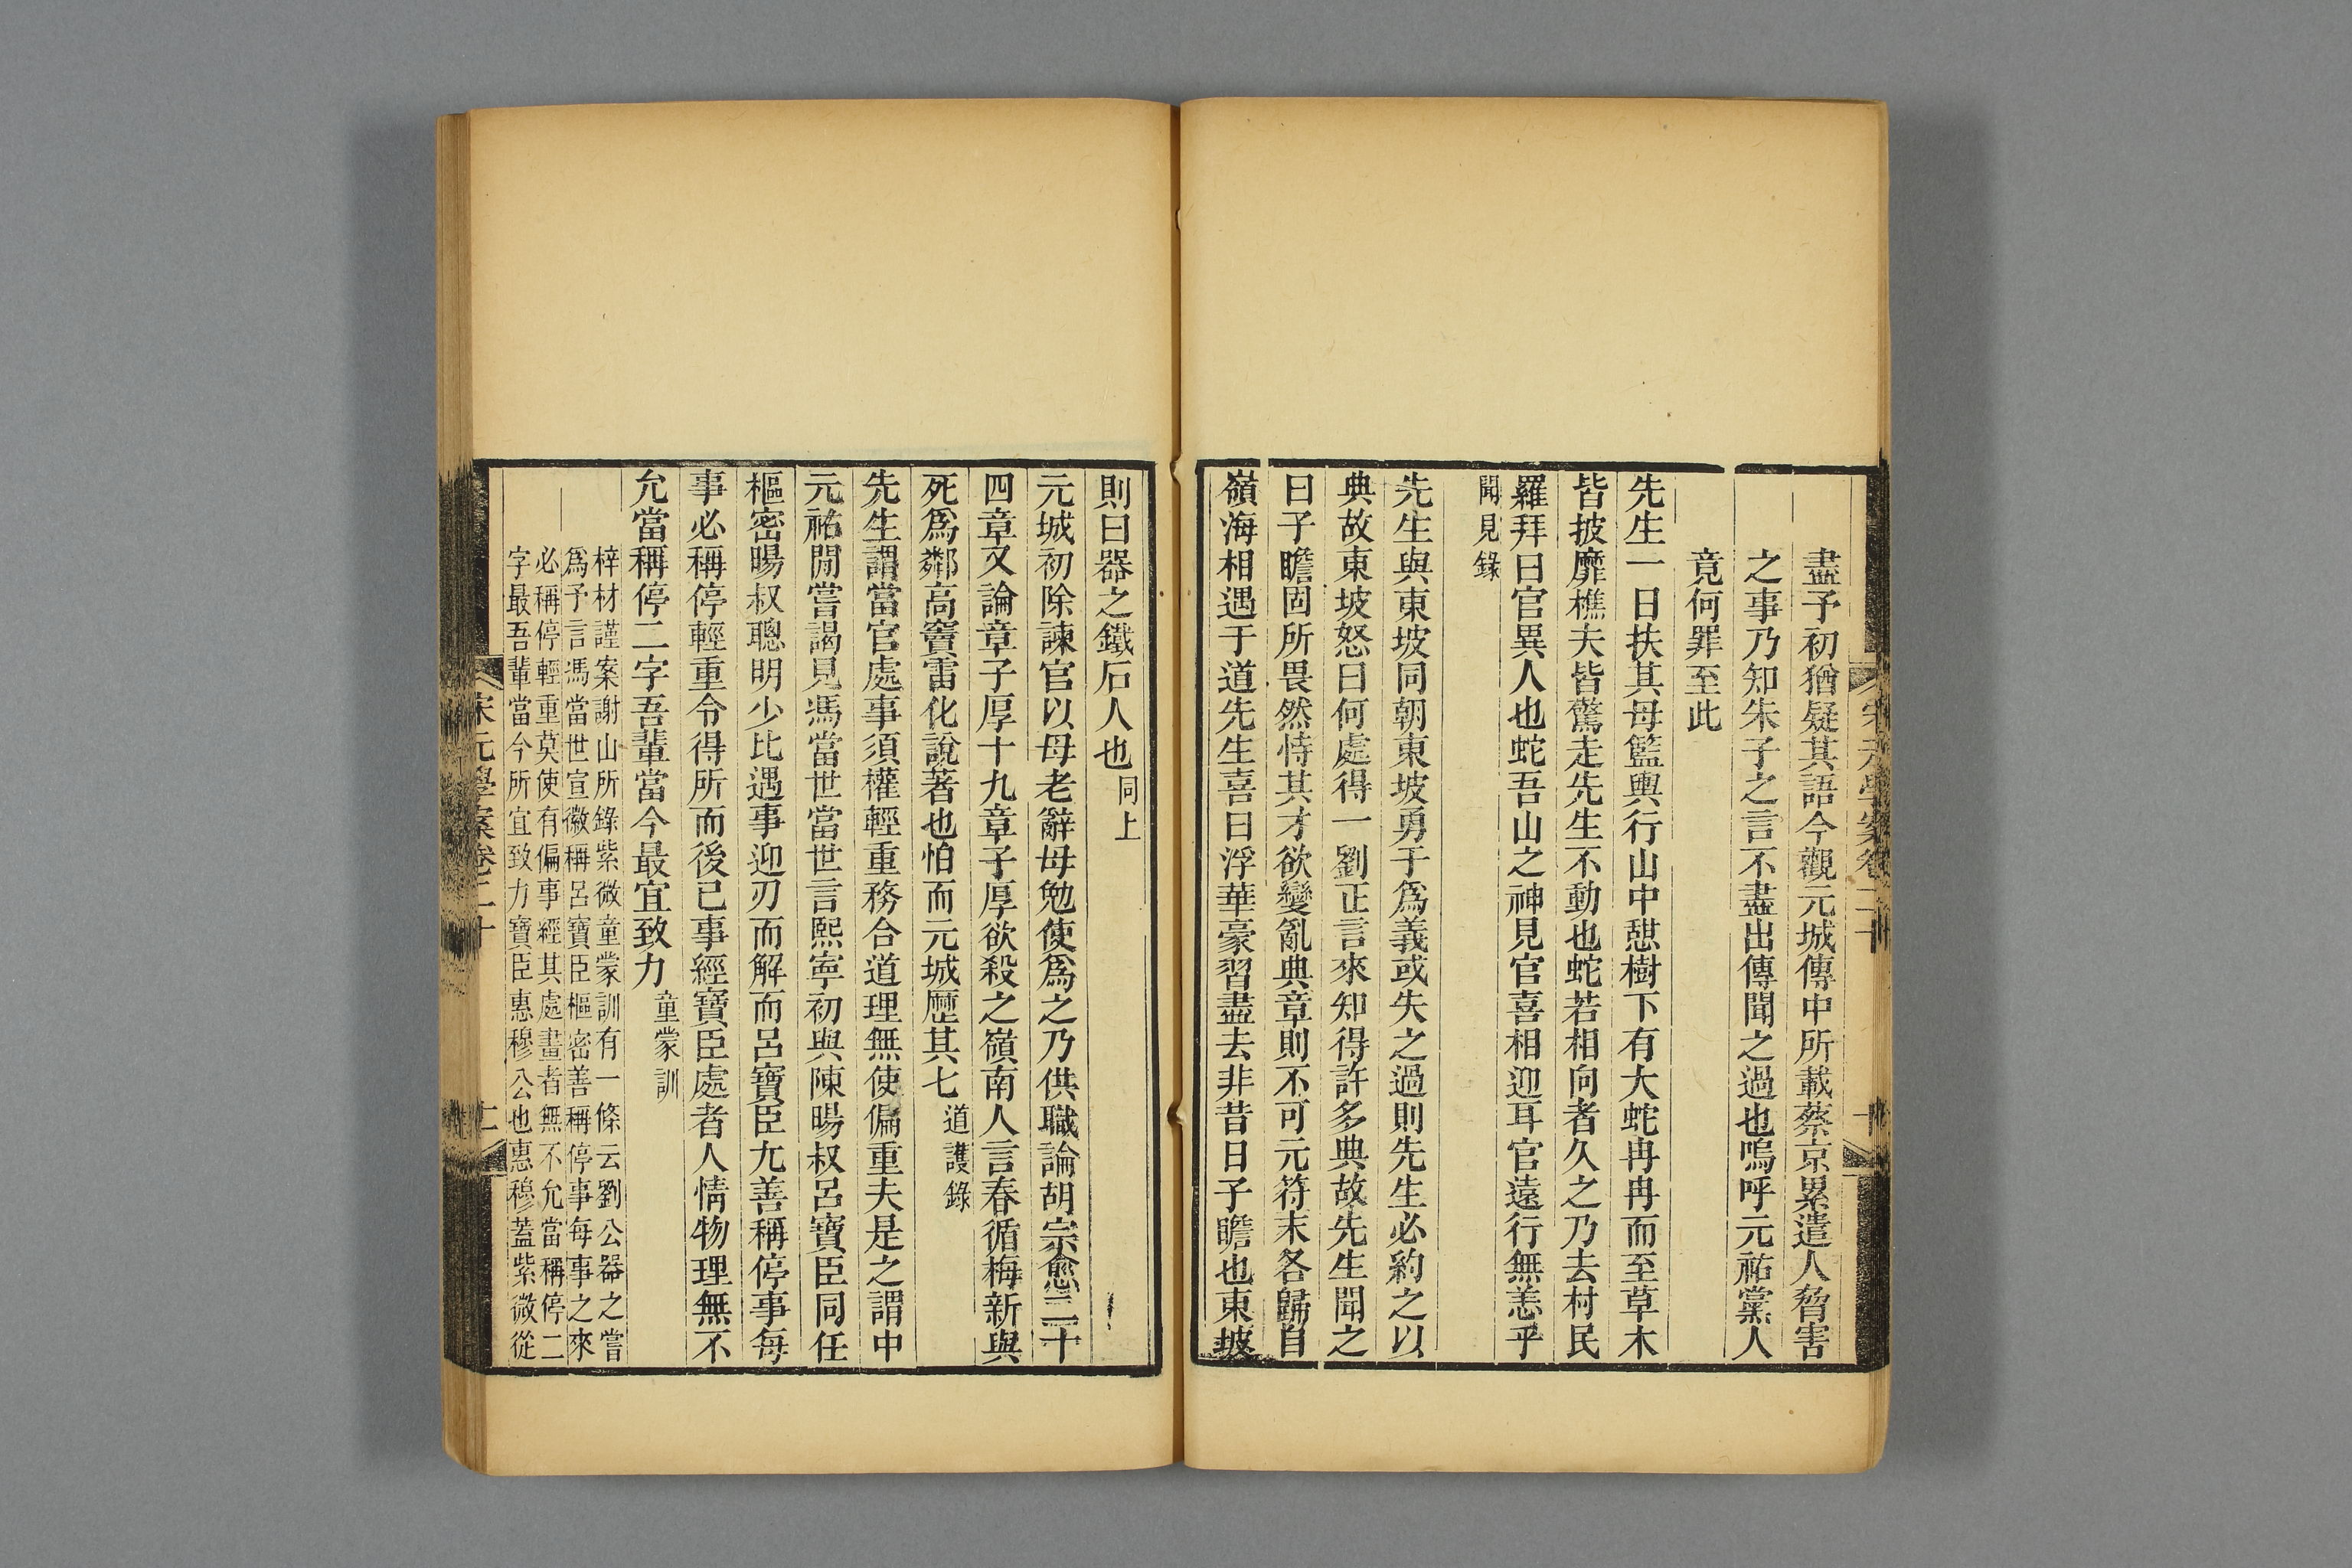 盡予初猶疑其語今觀元城傳中所載蔡京累遣人脅害
之事乃知朱子之言不盡出傳聞之過也嗚呼元祐黨人
竟何罪至此
先生一日扶其母籃輿行山中憇樹下有大蛇冉冉而至草木
皆披靡樵夫皆驚走先生不動也蛇若相向者久之乃去村民
羅拜曰官異人也蛇吾山之神見官喜相迎耳官遠行無恙乎
聞見錄
先生與東坡同朝東坡勇于爲義或失之過則先生必約之以
典故東坡怒曰何處得一劉正言來知得許多典故先生聞之
曰子瞻固所畏然恃其才欲變亂典章則不可元符末各歸自
嶺海相遇于道先生喜曰浮華豪習盡去非昔日子瞻也東坡
則曰器之鐵石人也同上
元城初除諫官以母老辭母勉使爲之乃供職論胡宗愈二十
四章又論章子厚十九章子厚欲殺之嶺南人言春循梅新與
死爲鄰高竇雷化說著也怕而元城歷其七道護錄
先生謂當官處事須權輕重務合道理無使偏重夫是之謂中
元祐閒嘗謁見馮當世當世言熙寧初與陳暘叔呂寶臣同任
樞密暘叔聰明少比遇事迎刃而解而呂寶臣尤善稱停事每
事必稱停輕重令得所而後已事經寶臣處者人情物理無不
允當稱停二字吾輩當今最宜致力童蒙訓
梓材謹案謝山所錄紫微童蒙訓有一條云劉公器之嘗
爲予言馮當世宣徽稱呂寶臣樞密善稱停事每事之來
必稱停輕重莫使有偏事經其處畫者無不允當稱停二
字最吾輩當今所宜致力寶臣惠穆公也惠穆蓋紫微從
宋元學案卷二十